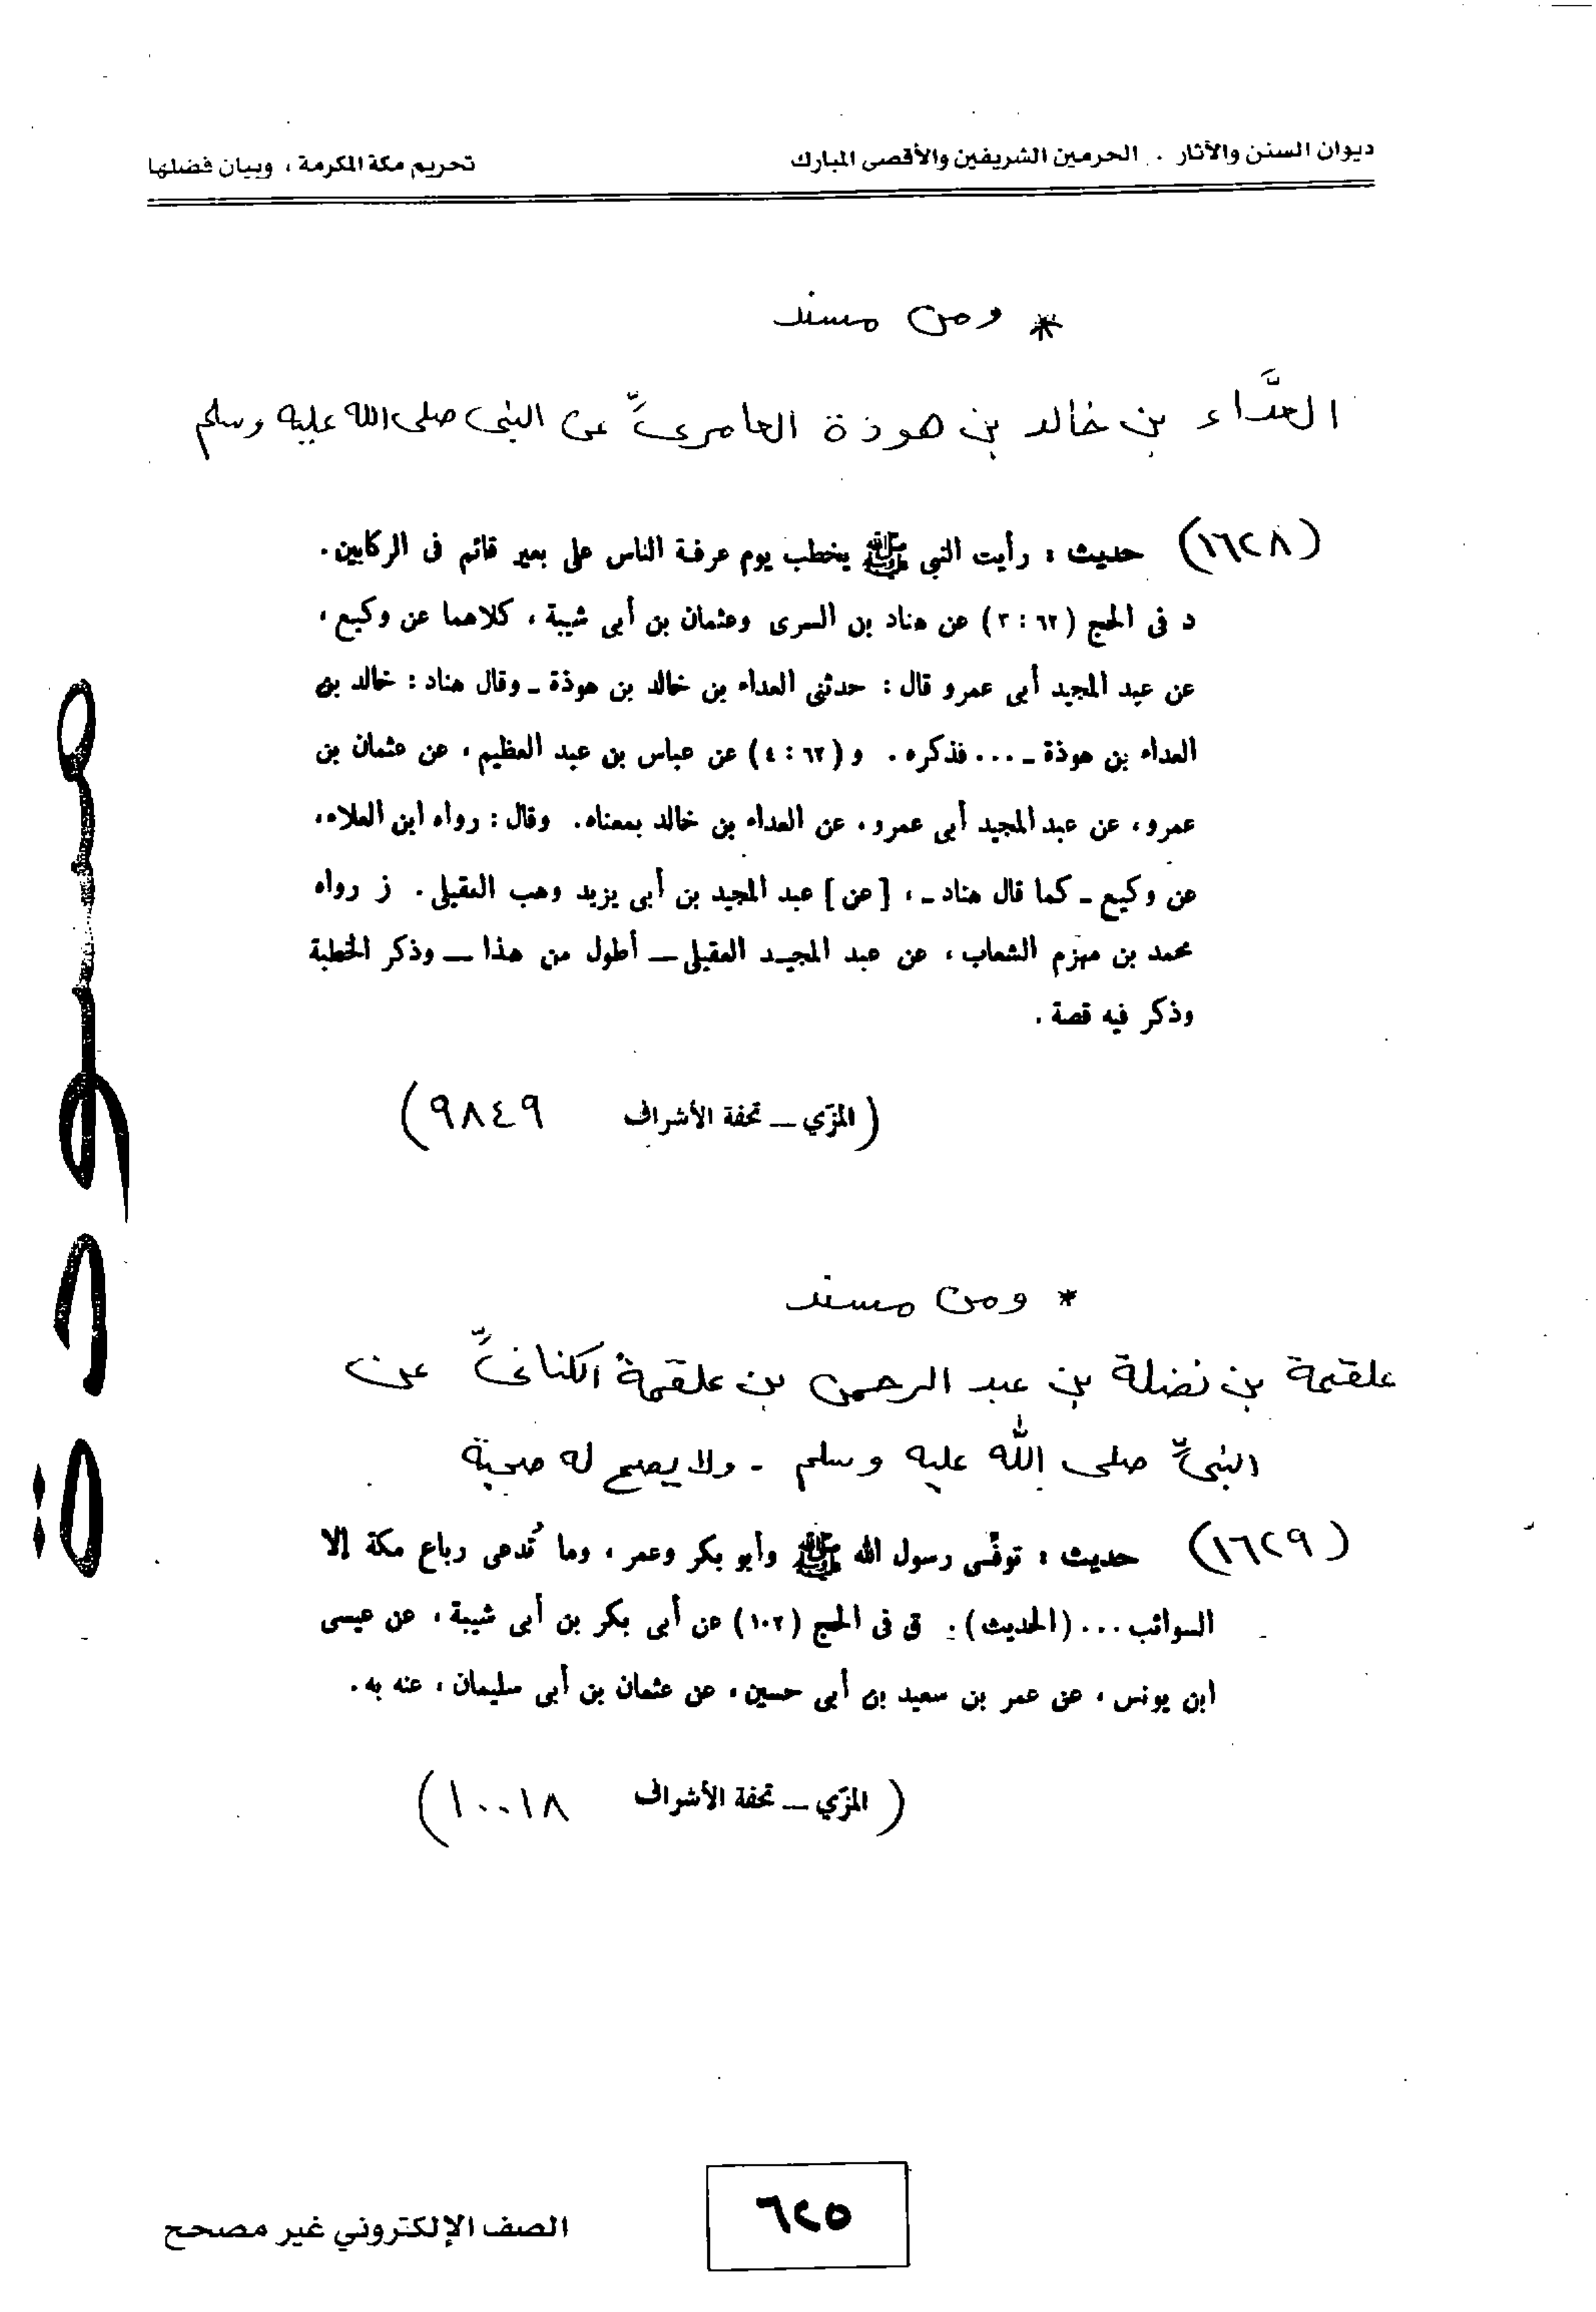 ديوان السنن والآثار . الحرمين الشريفين والأقصى المبارك
تحريم مكة المكرمة ، وبيان فضلها
* ومن مسند
العدَّاء بن خالد بن هوذة العامريِّ عن النبي صلى الله عليه وسلم
(١٦٢٨) حديث : رأيت النبي ﷺ يخطب يوم عرفة الناس على بعير قائم فى الركابين .
د فى الحج (٦٢ : ٣) عن هناد بن السرى وعثمان بن أبى شيبة ، كلاهما عن وكيع ،
عن عبد المجيد أبى عمرو قال : حدثنى العداء بن خالد بن هوذة ـ وقال هناد : خالد بن
العداء بن هوذة ـ ... فذكره . و (٦٢ : ٤) عن عباس بن عبد العظيم ، عن عثمان بن
عمرو ، عن عبد المجيد أبى عمرو ، عن العداء بن خالد بمعناه . وقال : رواه ابن العلاء ،
عن وكيع ـ كما قال هناد ـ ، [عن] عبد المجيد بن أبى يزيد وهب العقيلى . ز رواه
محمد بن مهزم الشعاب ، عن عبد المجيد العقيلى ــ أطول من هذا ــ وذكر الخطبة
وذكر فيه قصة .
(المزّي ــ تحفة الأشراف ٩٨٤٩)
* ومن مسند
علقمة بن نضلة بن عبد الرحمن بن علقمة الكنانيِّ عن
النبيِّ صلى الله عليه وسلم - ولا يصح له صحبة
(١٦٢٩) حديث : توفّى رسول الله ﷺ وأبو بكر وعمر ، وما تُدعى رباع مكة إلا
السوائب ... (الحديث) . ق فى الحج (١٠٢) عن أبى بكر بن أبى شيبة ، عن عيسى
ابن يونس ، عن عمر بن سعيد بن أبى حسين ، عن عثمان بن أبى سليمان ، عنه به .
(المزّي ــ تحفة الأشراف ١٠٠١٨)
مسودة
٦٢٥
الصف الإلكتروني غير مصحح